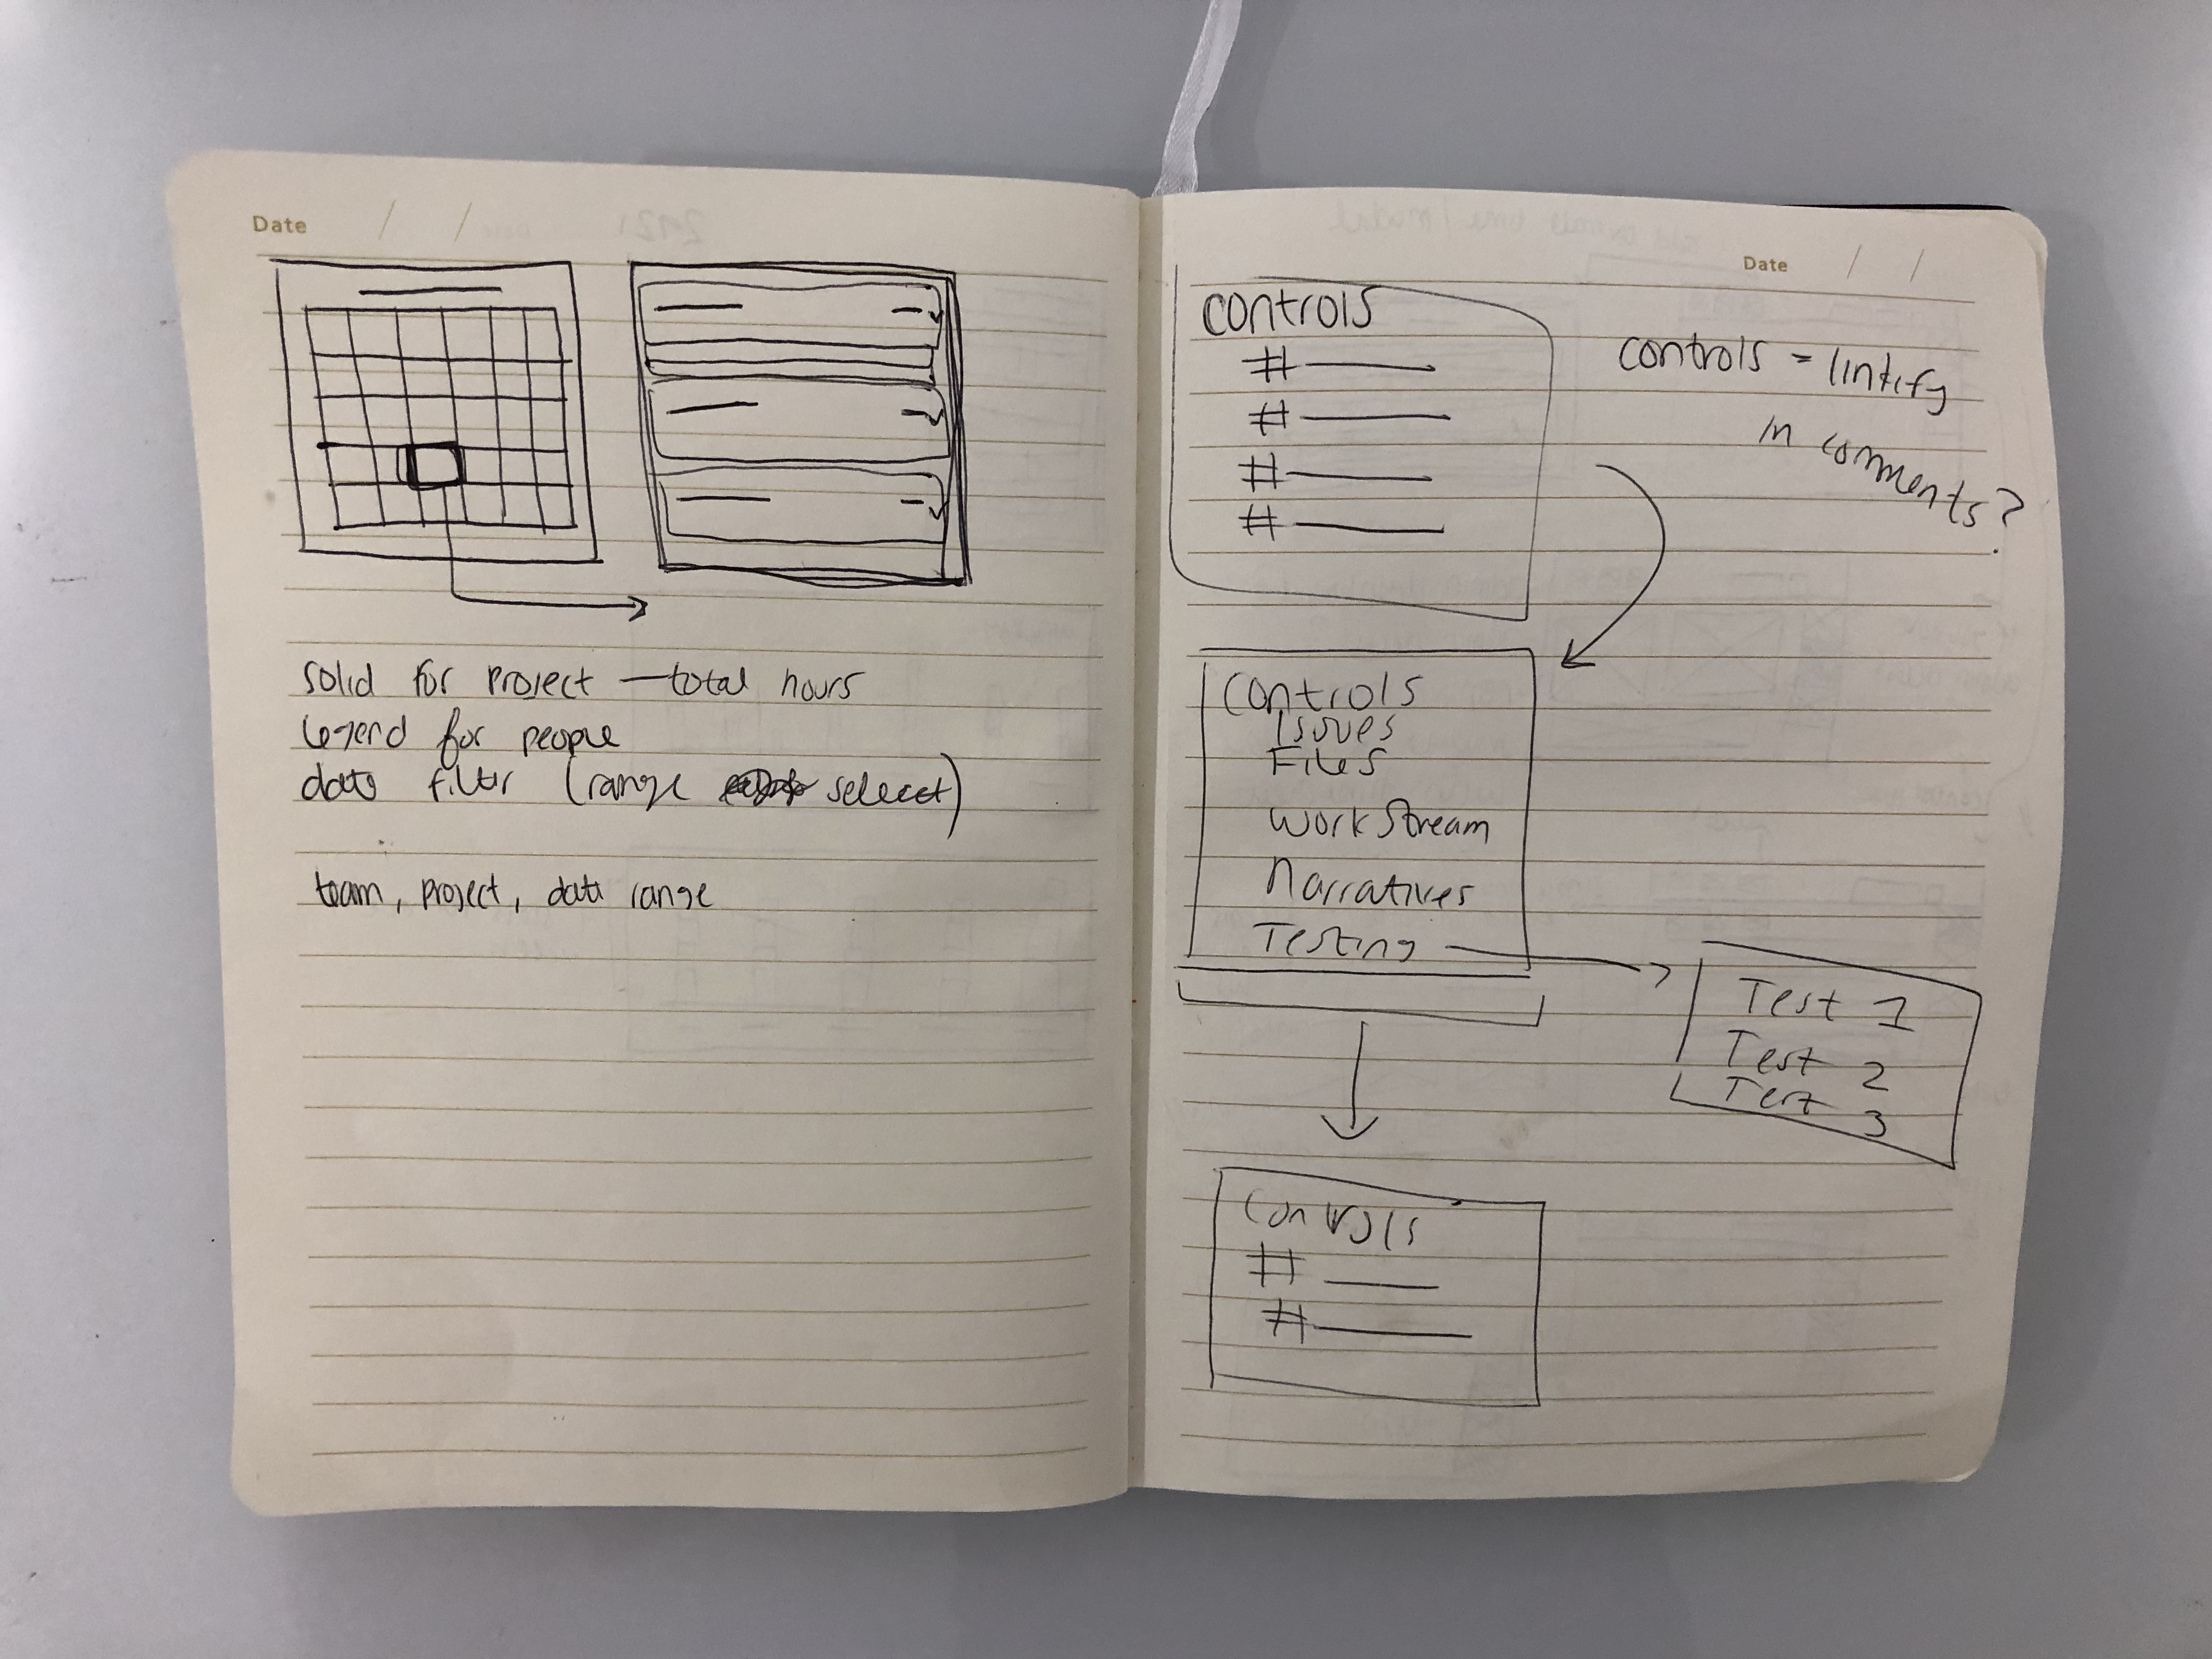 Date / /
solid for project — total hours
legend for people
date filter (range select)
team, project, date range
Date / /
controls
#
#
#
#
controls - lintify
in comments?
Controls
Issues
Files
Workstream
Narratives
Testing
Test 1
Test 2
Test 3
Controls
#
#